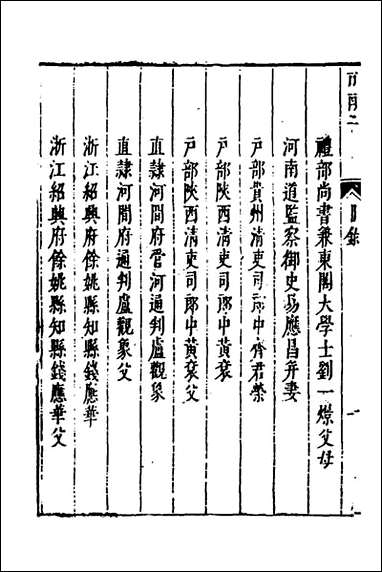 目錄
禮部尚書兼東閣大學士劉一燝父母
河南道監察御史易應昌并妻
戶部貴州清吏司郎中 君榮
戶部陝西清吏司郎中黃袞
戶部陝西清吏司郎中黃袞父
直隸河間府管河通判盧觀象
直隸河間府通判盧觀象父
浙江紹興府餘姚縣知縣錢應華
浙江紹興府餘姚縣知縣錢應華父